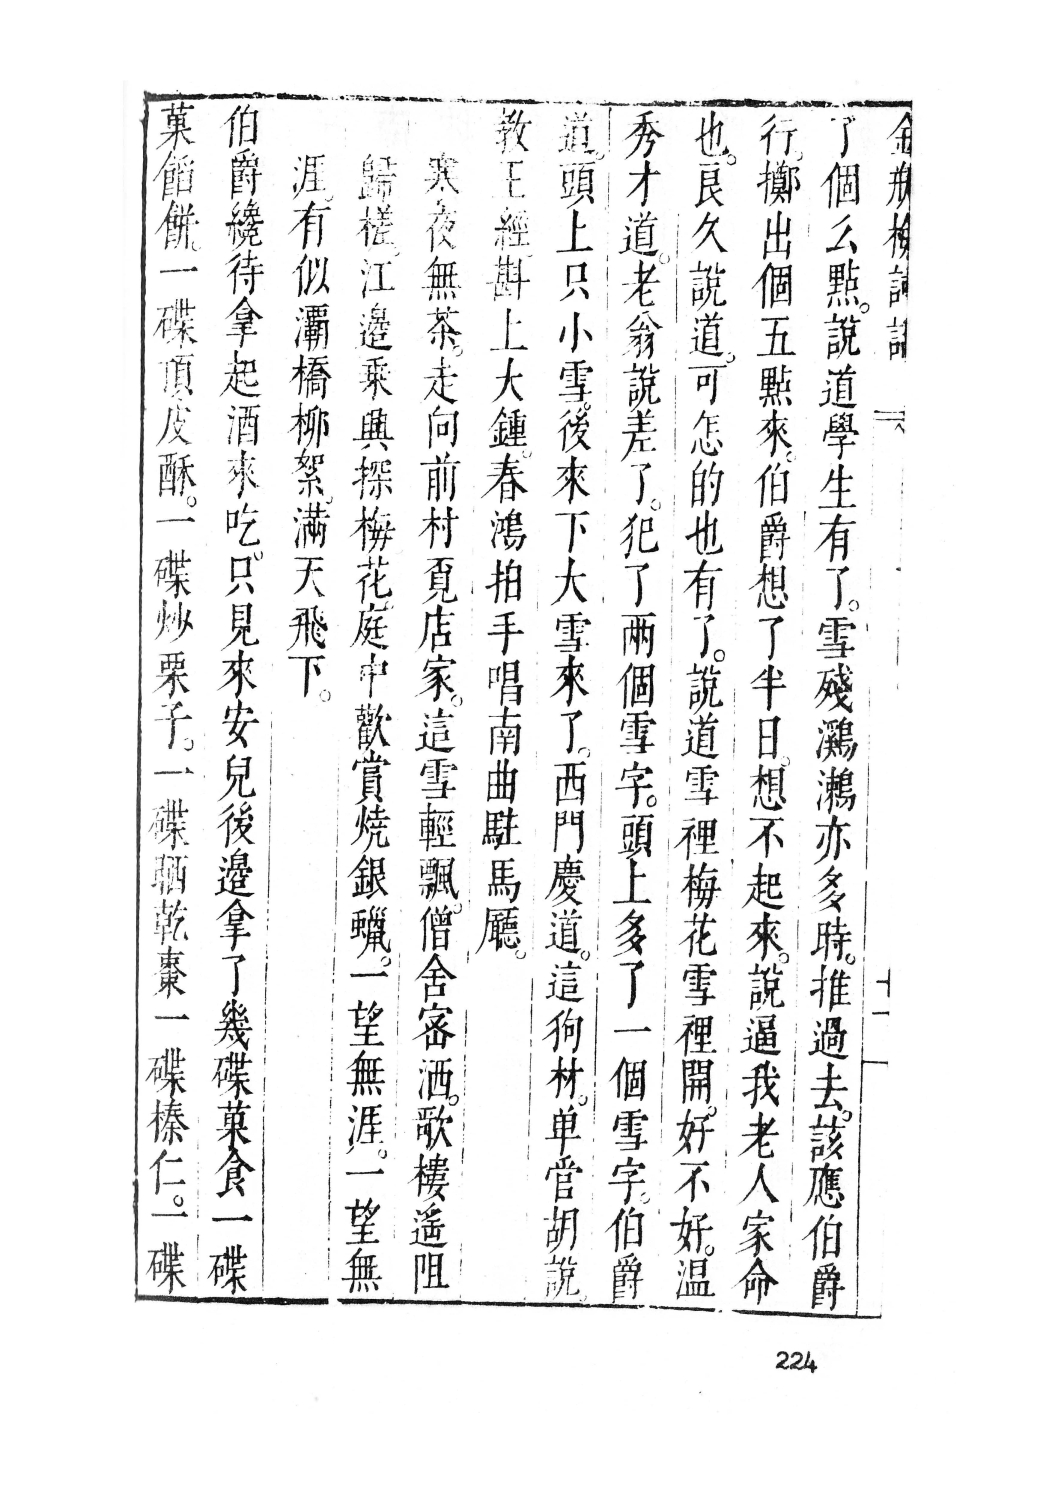 金瓶梅詞話 六 十一
了個么點。說道學生有了。雪殘鸂鶒亦多時。推過去。該應伯爵
行。擲出個五點來。伯爵想了半日。想不起來。說逼我老人家命
也。良久說道。可怎的也有了。說道雪裡梅花雪裡開。好不好。温
秀才道。老翁說差了。犯了兩個雪字。頭上多了一個雪字。伯爵
道。頭上只小雪。後來下大雪來了。西門慶道。這狗材。单管胡說。
教王經斟上大鍾。春鴻拍手唱南曲駐馬廳。
寒夜無茶。走向前村覓店家。這雪輕飄。僧舍密洒。歌樓遥阻
歸槎。江邊乘興探梅花。庭中歡賞燒銀蠟。一望無涯。一望無
涯。有似灞橋柳絮。滿天飛下。
伯爵纔待拿起酒來吃。只見來安兒後邊拿了幾碟菓食一碟
菓餡餅。一碟頂皮酥。一碟炒栗子。一碟晒乾棗一碟榛仁。一碟
224